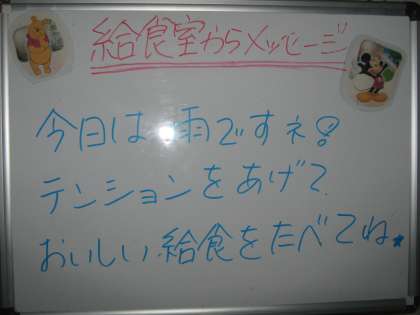 給食室からメッセージ
今日は雨ですネ!
テンションをあげて
おいしい給食をたべてね★